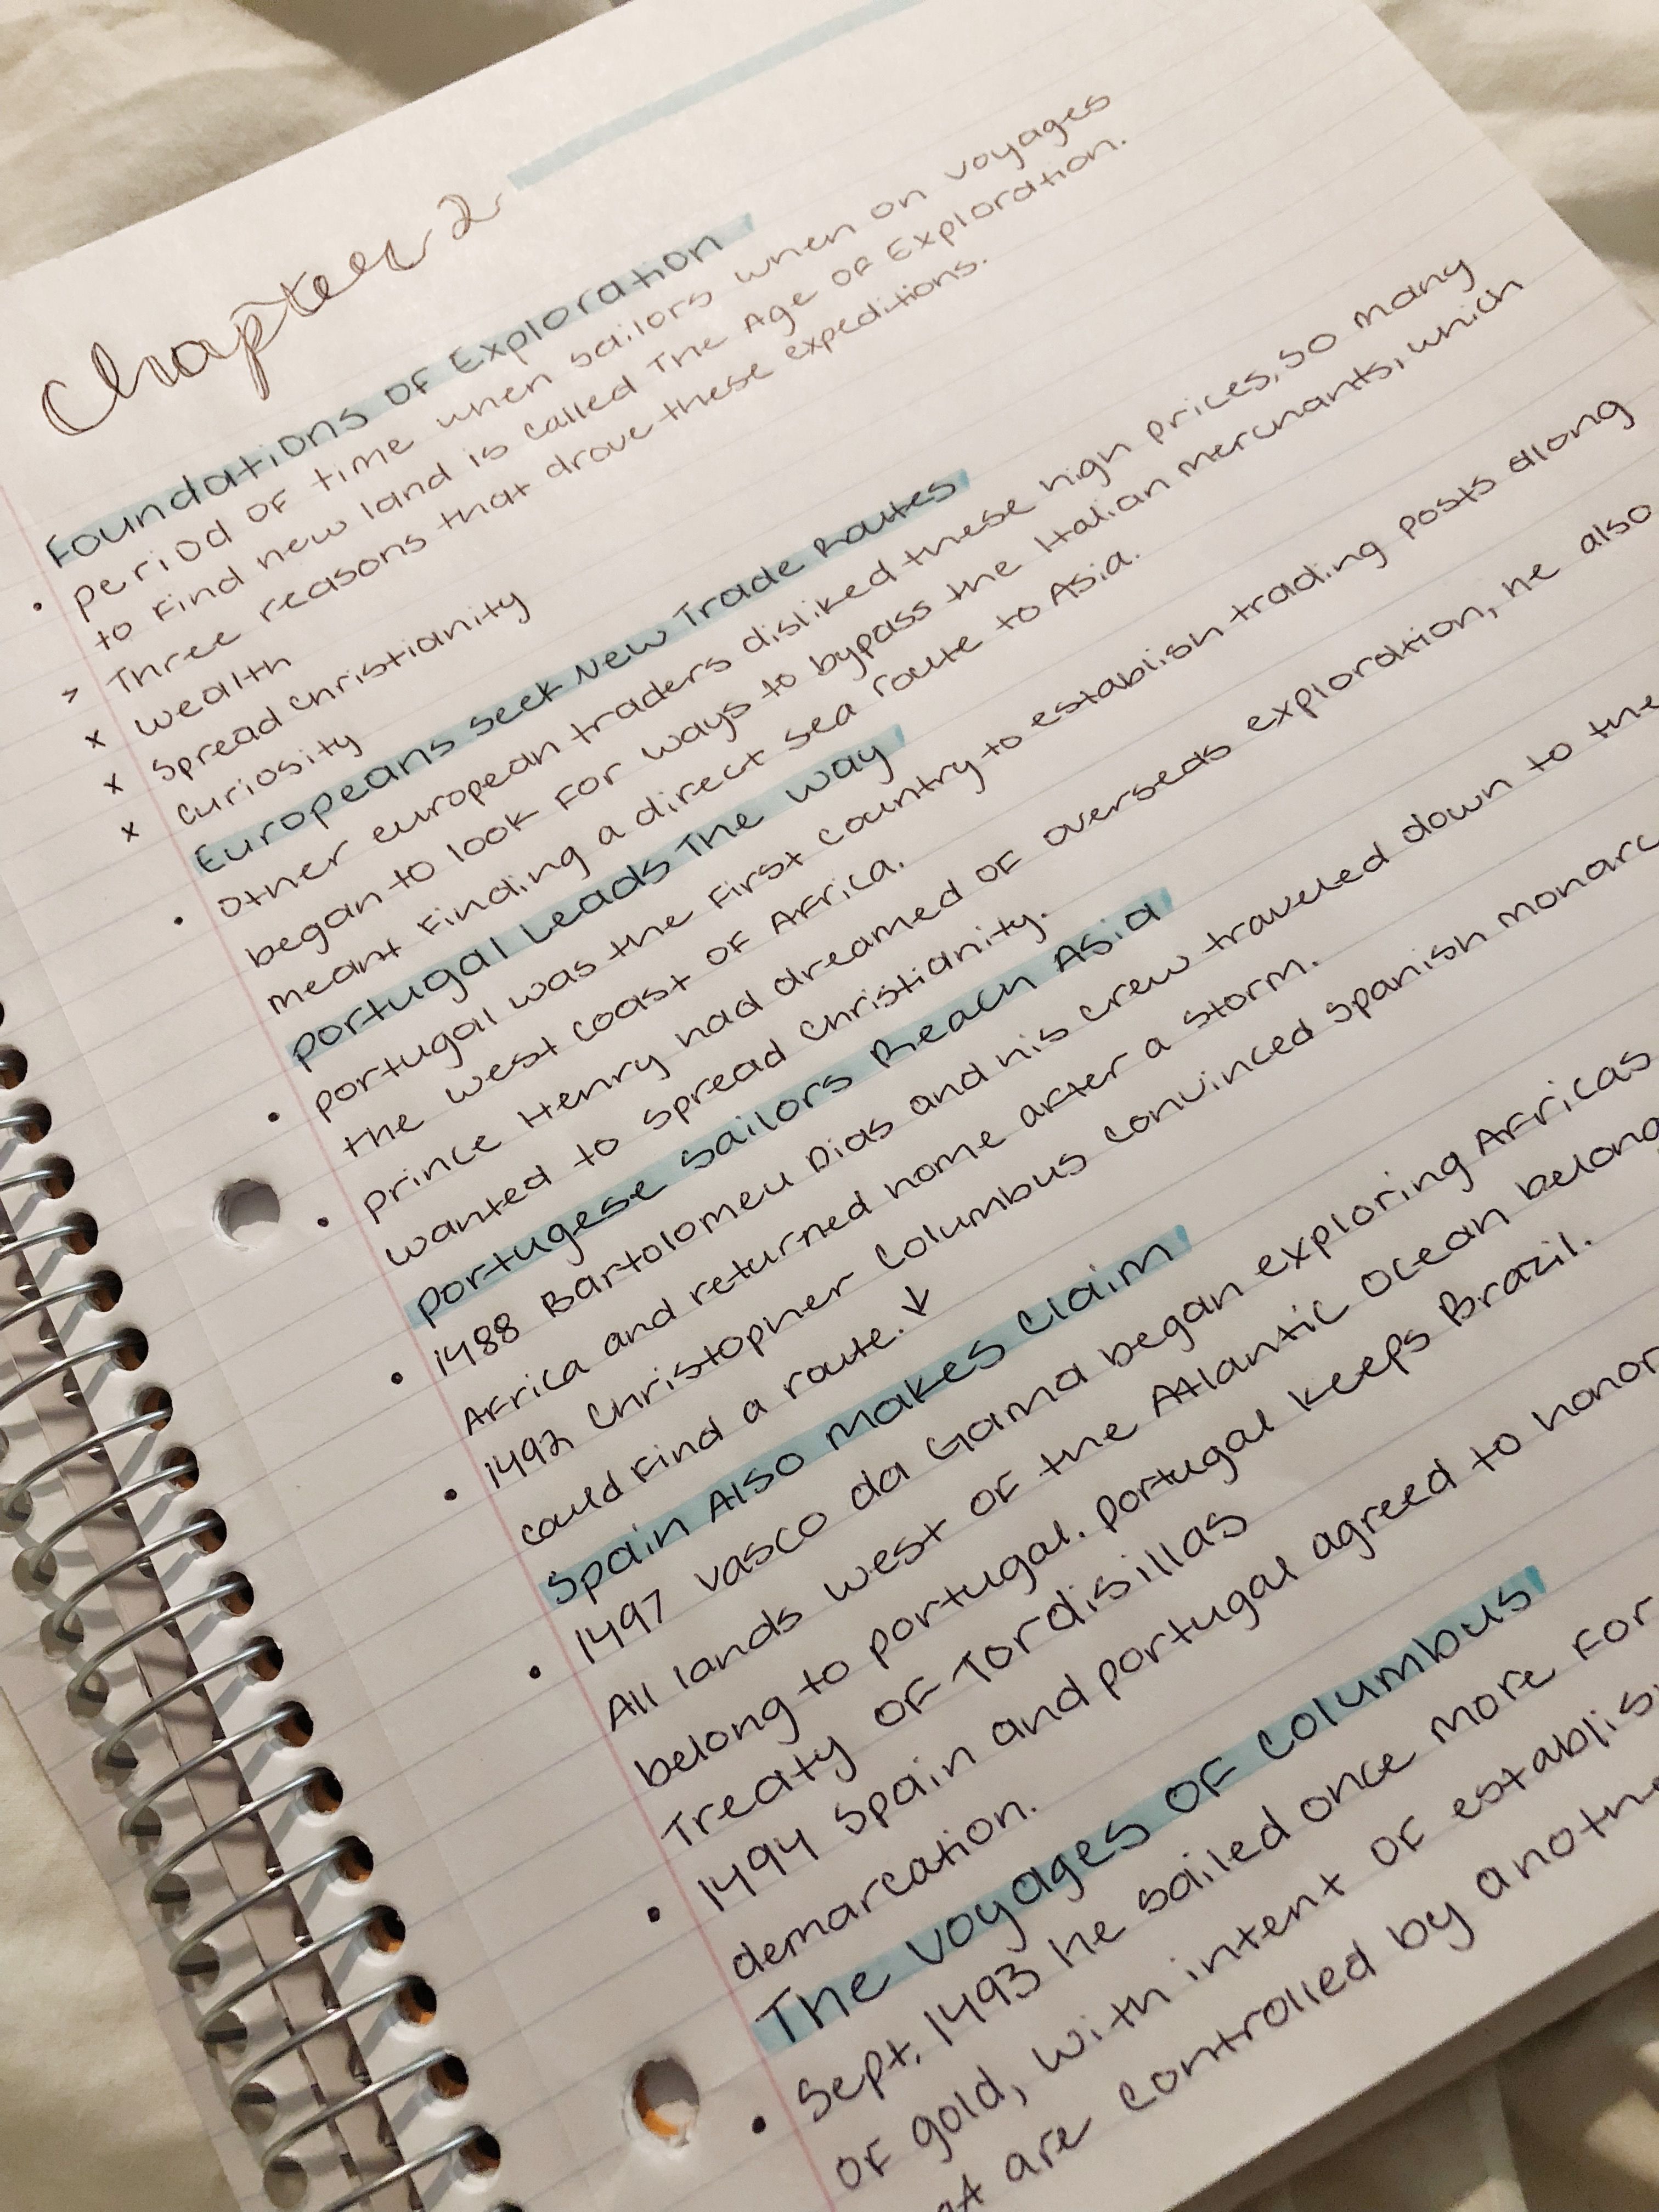 Chapter 2
Foundations of Exploration
• period of time when sailors when on voyages
to find new land is called The Age of Exploration.
> Three reasons that drove these expeditions.
x wealth
x Spread Christianity
x curiosity
Europeans Seek New Trade Routes
• Other european traders disliked these high prices, so many
began to look for ways to bypass the Italian merchants, which
meant finding a direct sea route to Asia.
Portugal Leads The Way
• portugal was the first country to establish trading posts along
the west coast of Africa.
• prince Henry had dreamed of overseas exploration, he also
wanted to spread Christianity.
Portugese Sailors Reach Asia
• 1488 Bartolomeu Dias and his crew traveled down to the
Africa and returned home after a storm.
• 1492 Christopher Columbus convinced Spanish monarc
could find a route. ↓
Spain Also Makes Claim
• 1497 Vasco da Gama began exploring Africas
All lands west of the Atlantic Ocean belong
belong to portugal. portugal keeps Brazil.
Treaty of Tordisillas
• 1494 Spain and portugal agreed to honor
demarcation.
The Voyages of Columbus
• Sept. 1493 he sailed once more for
of gold, with intent of establis
are controlled by anothe